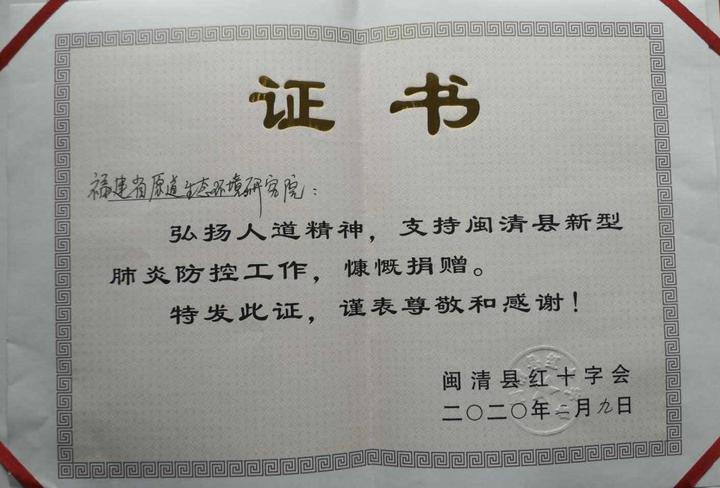 证书
福建省原道生态环境研究院：
弘扬人道精神，支持闽清县新型
肺炎防控工作，慷慨捐赠。
特发此证，谨表尊敬和感谢！
闽清县红十字会
二〇二〇年二月九日